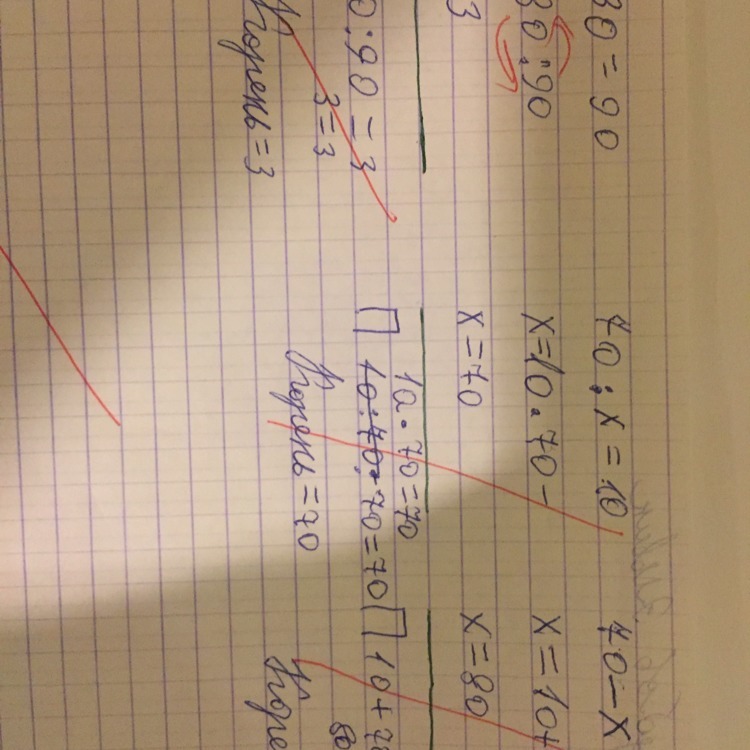 30 = 90
30 : 90
3
0 : 90 = 3
3 = 3
Корень = 3
70 : х = 10
х = 10 · 70 -
х = 70
10 · 70 = 70
10 : 70 · 70 = 70
Корень = 70
70 - х
х = 10 +
х = 80
10 + 70
80
Коре